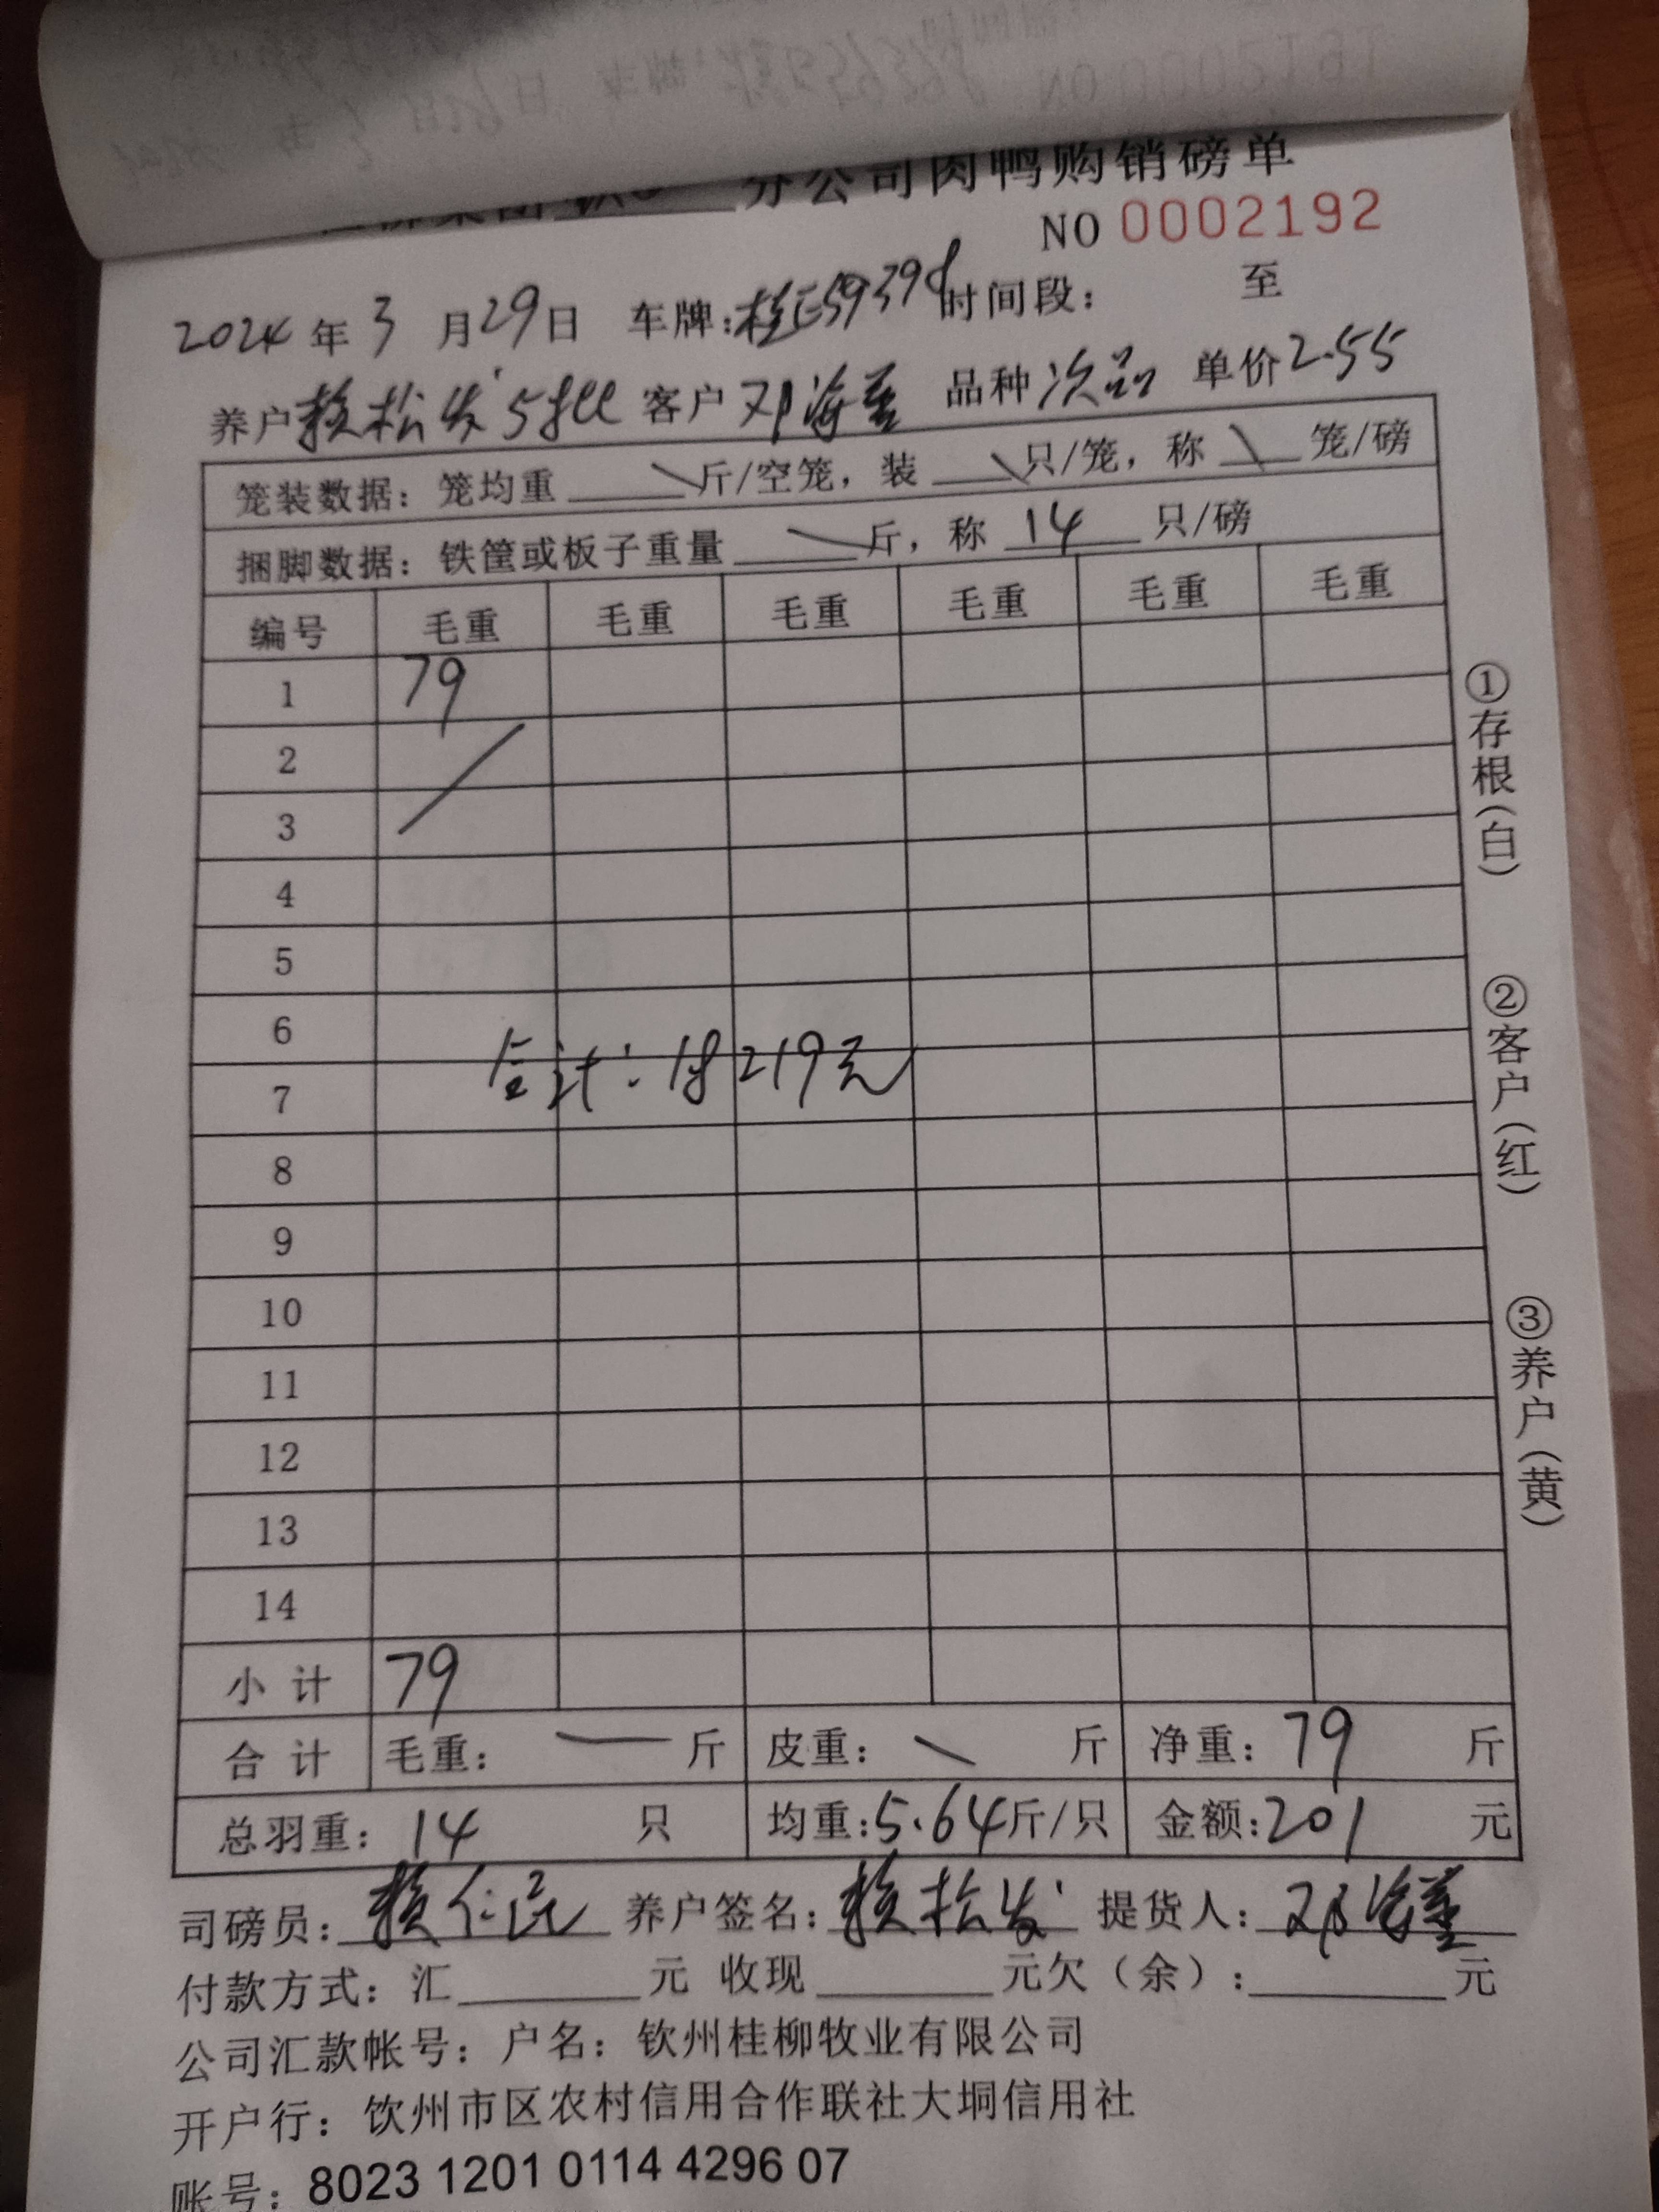 分公司肉鸭购销磅单
NO 0002192
2024年3月29日 车牌:桂E59398 时间段: 至
养户 赖松发 5批 客户 邓海 品种 次品 单价 2.55
笼装数据: 笼均重 斤/空笼, 装 只/笼, 称 笼/磅
捆脚数据: 铁筐或板子重量 斤, 称 14 只/磅
编号 毛重 毛重 毛重 毛重 毛重 毛重
1 79
2
3
4
5
6
合计: 18219元
7
8
9
10
11
12
13
14
小计 79
合计 毛重: 斤 皮重: 斤 净重: 79 斤
总羽重: 14 只 均重: 5.64 斤/只 金额: 201 元
司磅员: 赖 养户签名: 赖松发 提货人: 邓海
付款方式: 汇 元 收现 元欠(余): 元
公司汇款帐号: 户名: 钦州桂柳牧业有限公司
开户行: 钦州市区农村信用合作联社大垌信用社
账号: 8023 1201 0114 4296 07
①存根(白)
②客户(红)
③养户(黄)